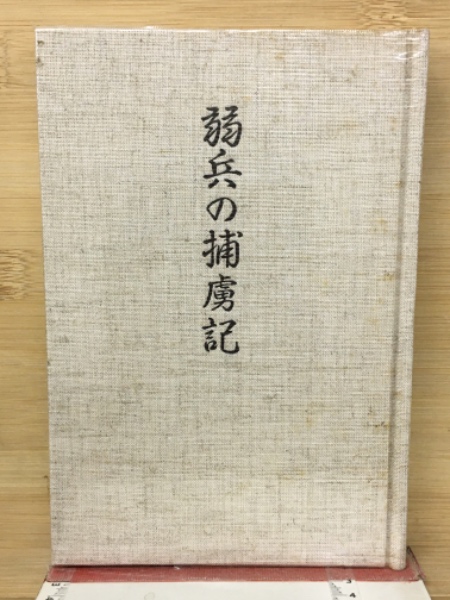 弱兵の捕虜記